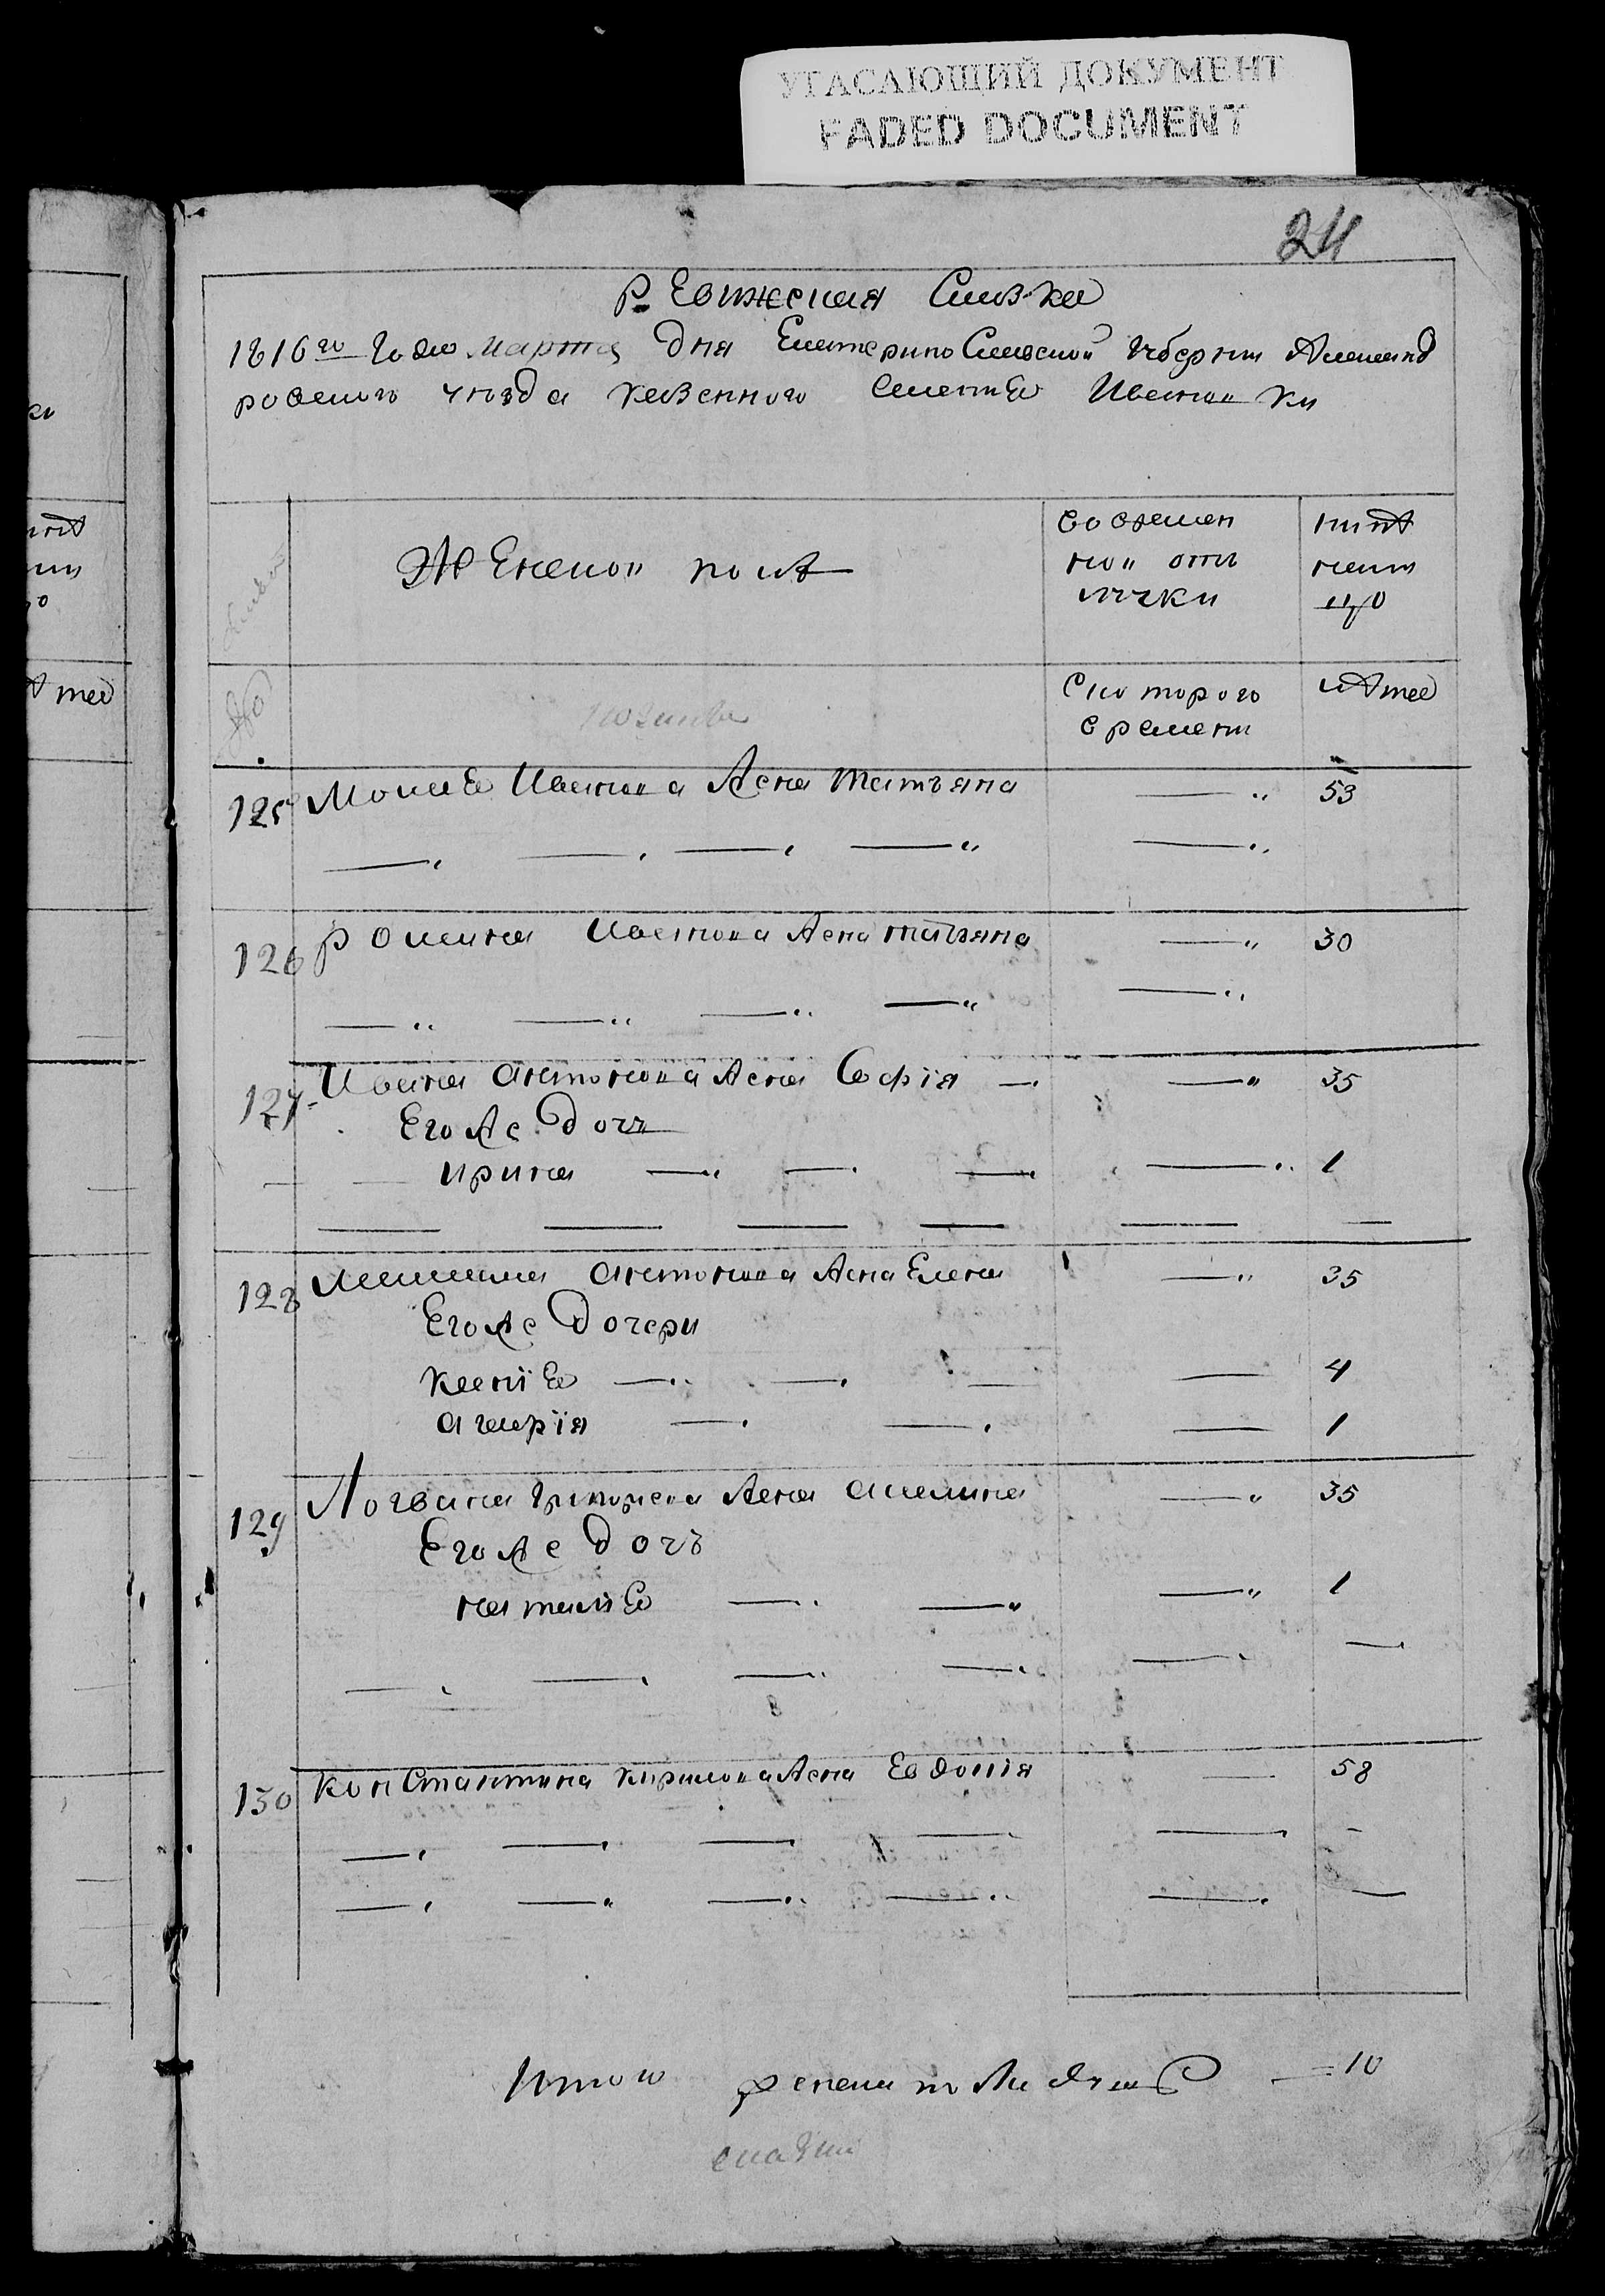 УГАСАЮЩИЙ ДОКУМЕНТ
FADED DOCUMENT
24
Ревижская Сказка
1816го Года Марта дня Екатерино Славской Губернии Александ
ровского уезда казенного Селения Ивановки
Женской пол
во времен
ной отъ
лучки
ныне
налицо
С которого
времени
лета
125 Моисея Иванова жена татьяна 53
126 романа Иванова жена татьяна 30
127 Ивана антонова жена Софія 35
Его же дочь
ирина 1
128 антонова жена Елена 35
Его же дочери
ксенія 4
1
129 Логвина григорева жена акелина 35
Его же дочь
наталія 1
130 константина кирилова жена Евдокія 58
Итого женска на лицо 10